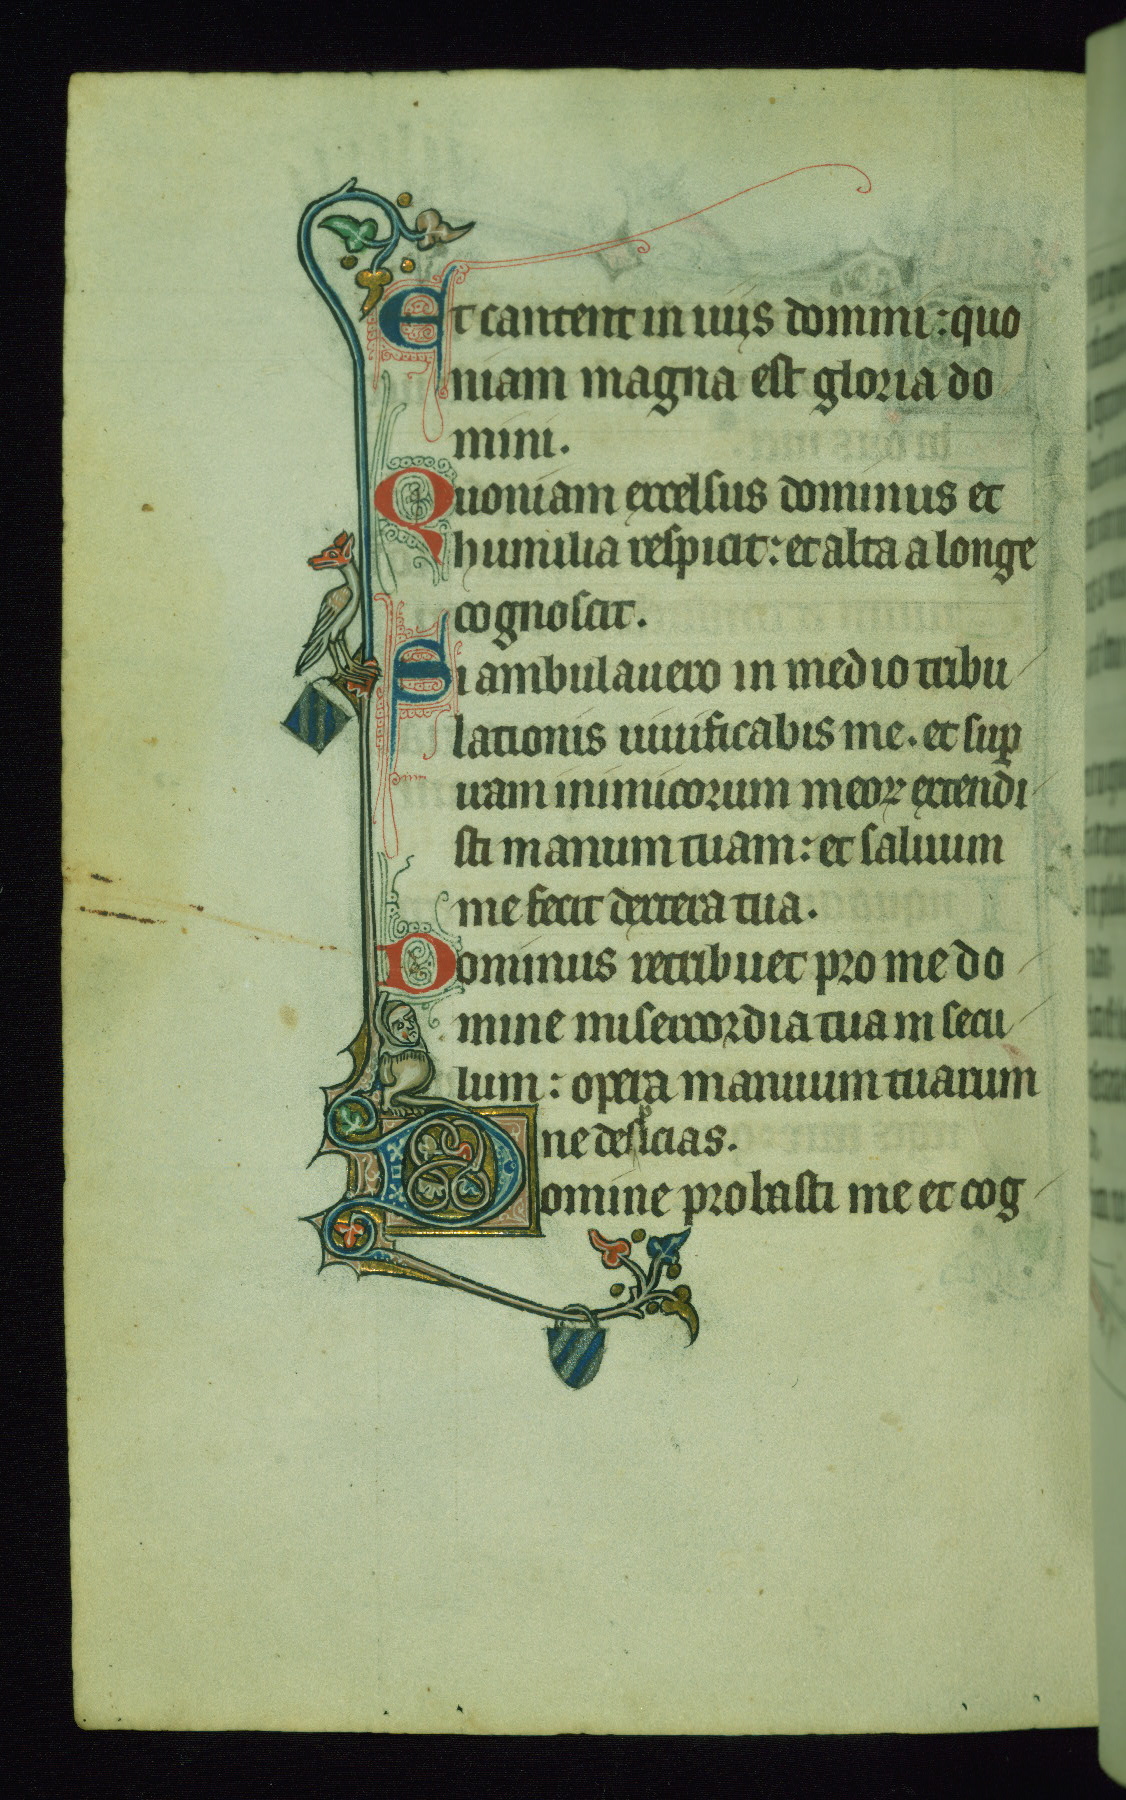 Et cantent in uiis domini: quo
niam magna est gloria do
mini.
Quoniam excelsus dominus et
humilia respicit: et alta a longe
cognoscit.
Si ambulauero in medio tribu
lationis uiuificabis me. et sup
uam inimicorum meoꝝ extendi
sti manum tuam: et saluum
me fecit dextera tua.
Dominus retribuet pro me do
mine misericordia tuam secu
lum: opera manuum tuarum
ne despicias.
Domine probasti me et cog